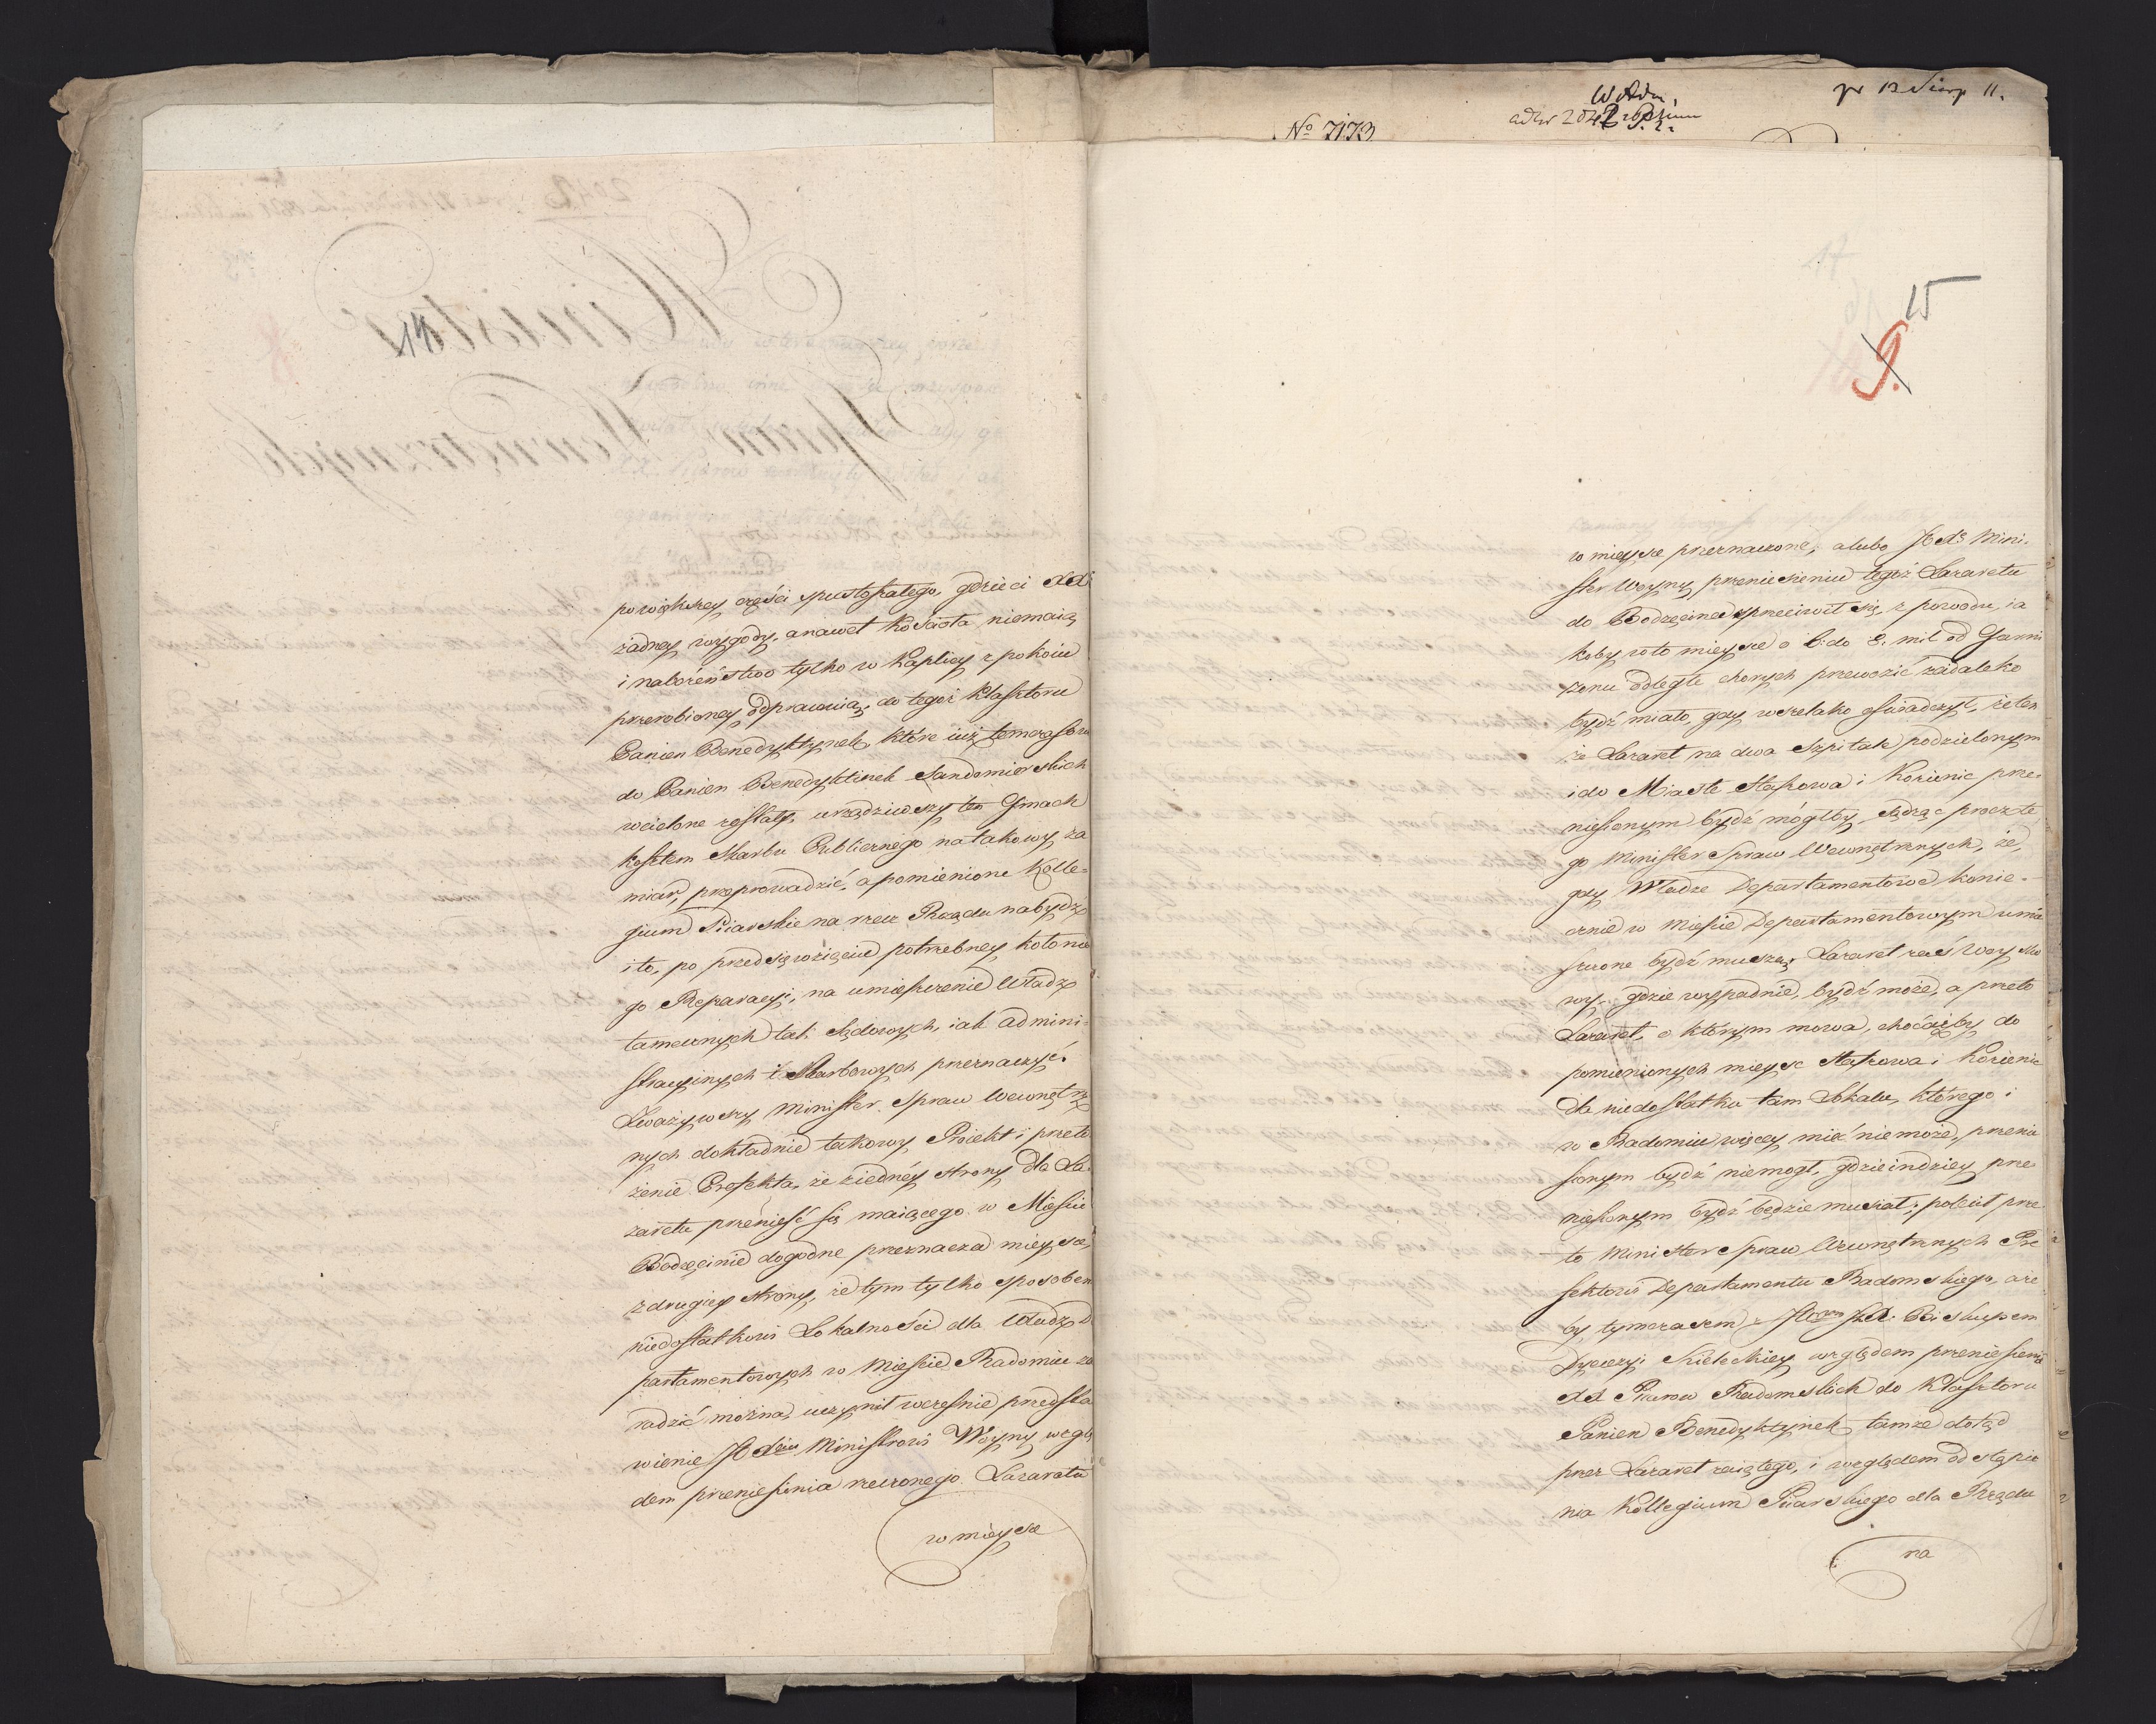 po większey części spustoszałego, gdzie ci XX
żadney wygody, a nawet Kościoła niemaią
i nabożeństwo tylko w Kaplicy z pokoiu
przerobioney odprawiaią, do tegoż Klasztoru
Panien Benedyktynek, które iuż temczasem
do Panien Benedyktinek Sandomierskich
wcielone zostały, urządziwszy ten Gmach
kosztem Skarbu Publicznego na takowy za
miar, przeprowadzić, a pomienione Kolle-
gium Piiarskie na rzecz Rządu nabydź
i to, po przedsięwzięciu potrzebney koło nie
go Reparacyi, na umieszczenie Władz
tamecznych tak Sądowych, iak admini-
stracyinych i Skarbowych przeznaczyć.
Zważywszy Minister Spraw Wewnętrz
nych dokładnie takowy Proiekt i przeto
żenie Prefekta, że ziedney strony dla La-
zaretu przenieść się maiącego w Mieście
Bodzęcinie dogodne przeznacza mieysce,
z drugiey strony, że tym tylko sposobem
niedostatkowi Lokalności dla Władz D
partamentowych w Mieście Radomiu za
radzić można, uczynił wcześnie przedsta
wienie Ministrowi Woyny wzglę
dem przeniesienia rzeczonego Lazaretu
w mieysce
14
No 7173
W Adm.
pr 13 Sierp 11.
15
9.
w mieysce przeznaczone, a lubo Mini-
ster Woyny przeniesieniu tegoż Lazaretu
do Bodzęcina sprzeciwił się, z powodu, ia
koby to mieysce o 6. do 8. mil od Garni
zonu odległe chorych przewozić zadaleko
bydź miało, gdy wszelako oświadczył, że ten
że Lazaret na dwa Szpitale podzielonym
i do Miasta Staszowa i Kozienic prze-
niesionym bydź mógłby, sądząc przeto te
go Minister Spraw Wewnętrznych, że,
gdy Władze Departamentowe konie-
cznie w Mieście Departamentowym umie
szczone bydź muszą, Lazaret zaś Woysko
wy gdzie wypadnie, bydź może, a przeto
Lazaret, o którym mowa, choćaiby do
pomienionych mieysc Staszowa i Kozienic
dla niedostatku tam Lokalu, którego i
w Radomiu więcey mieć niemoże, przenie
sionym bydź niemogł, gdzieindziey prze-
niesionym bydź będzie musiał; polecił prze
to Minister Spraw Wewnętrznych Pre
fektowi Departamentu Radomskiego, aże
by tymczasem z Biskupem
Dyecezyi Kieleckiey względem przeniesienia
XX Piiarow Radomskich do Klasztoru
Panien Benedyktynek tamże dotąd
przez Lazaret zaiętego, i względem odstąpie
nia Kollegium Piiarskiego dla Rządu
na